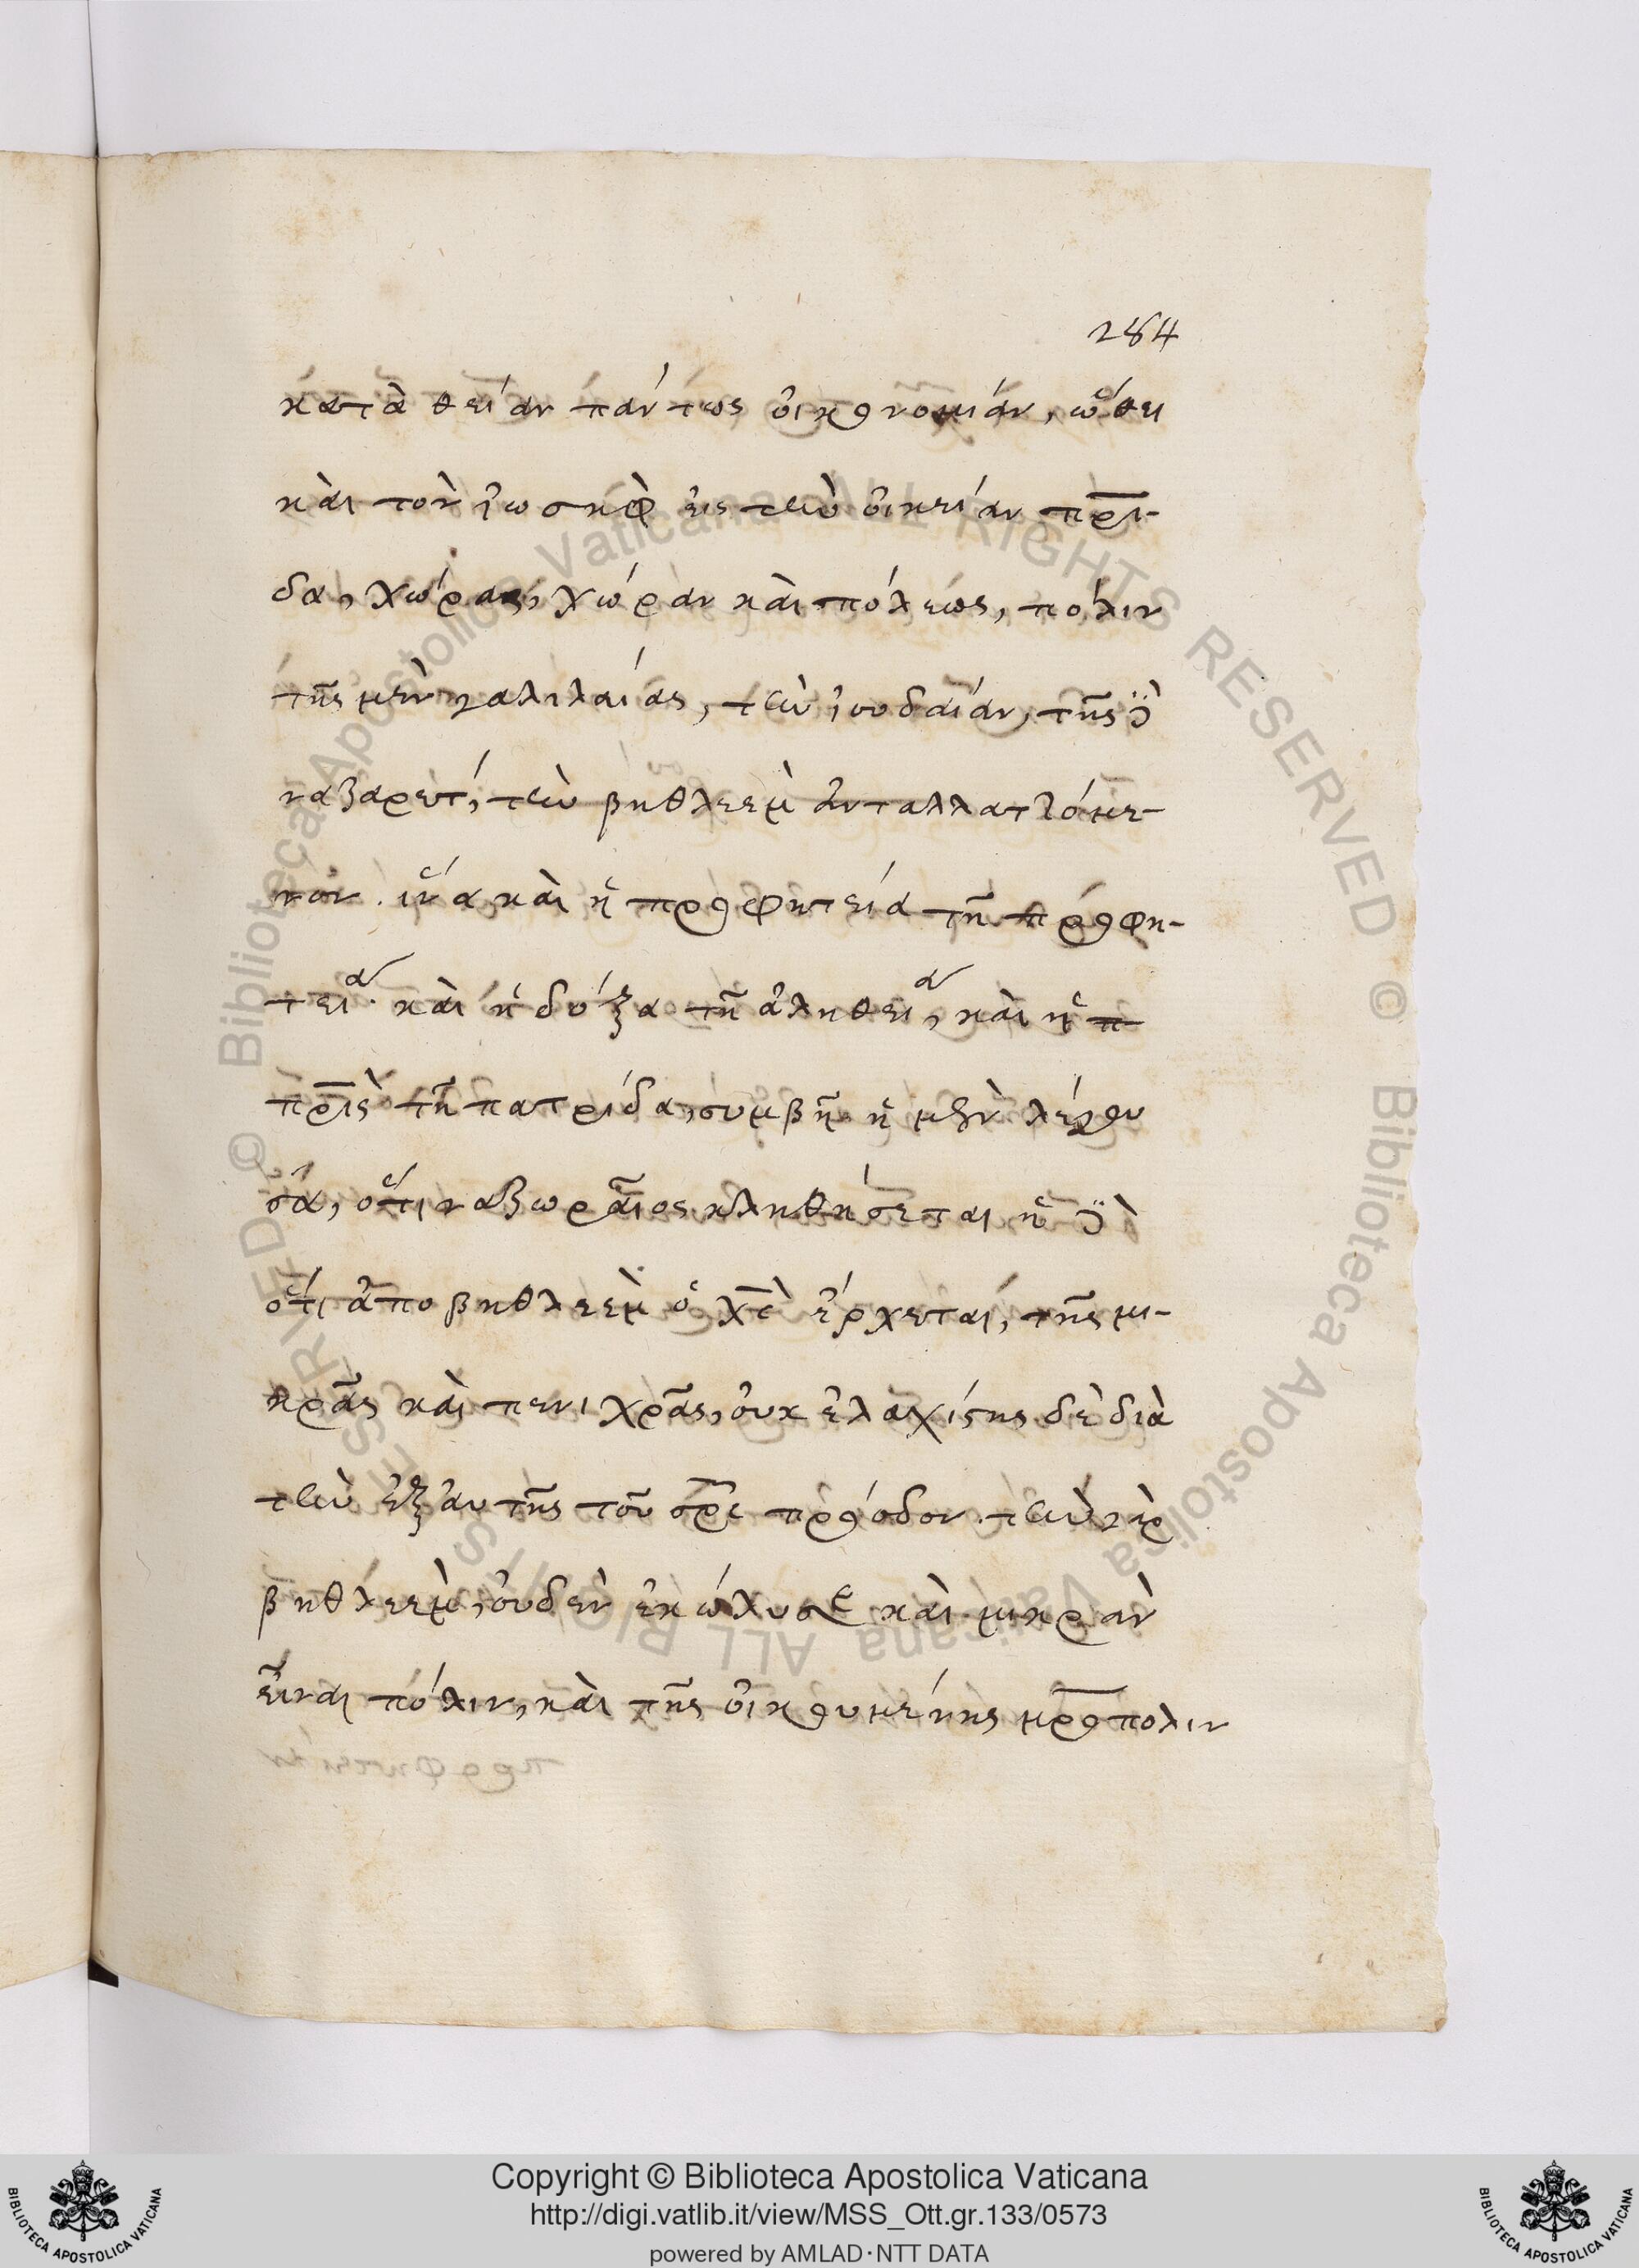 284
κατὰ θείαν πάντως οἰκονομίαν, ὤθει
καὶ τὸν ἰωσὴφ εἰς τὴν οἰκείαν πρι-
δα, χώρας, χώραν καὶ πόλεως, πόλιν
τῆς μὲν γαλιλαίας, τὴν ἰουδαίαν, τῆς δὲ
ναζαρέτ, τὴν βηθλεὲμ ἀνταλλαττόμε-
νον. ἵνα καὶ ἡ προφητεία τῆ προφη-
τεία. καὶ ἡ δόξα τῆ ἀληθεία, καὶ ἡ π
πρὶς τῆ πατρίδα, συμβῆ ἡ μὲν λέγου
σα, ὅτι ναζωραῖος κληθήσεται ἡ δὲ
ὅτι ἀπο βηθλεὲμ ὁ χς ἔρχεται, τῆς μι-
κρᾶς καὶ πενιχρᾶς, οὐκ ἐλαχίστης δὲ διὰ
τὴν ἐξ αὐτῆς τοῦ σρς πρόοδον. τὴν γὰρ
βηθλεὲμ, οὐδὲν ἐκώλυσε καὶ μικρὰν
εἶναι πόλιν, καὶ τῆς οἰκουμένης μροπολιν
Copyright © Biblioteca Apostolica Vaticana
http://digi.vatlib.it/view/MSS_Ott.gr.133/0573
powered by AMLAD·NTT DATA
BIBLIOTECA APOSTOLICA VATICANA
BIBLIOTECA APOSTOLICA VATICANA
© Biblioteca Apostolica Vaticana ALL RIGHTS RESERVED © Biblioteca Apostolica Vaticana ALL RIGHTS RESERVED